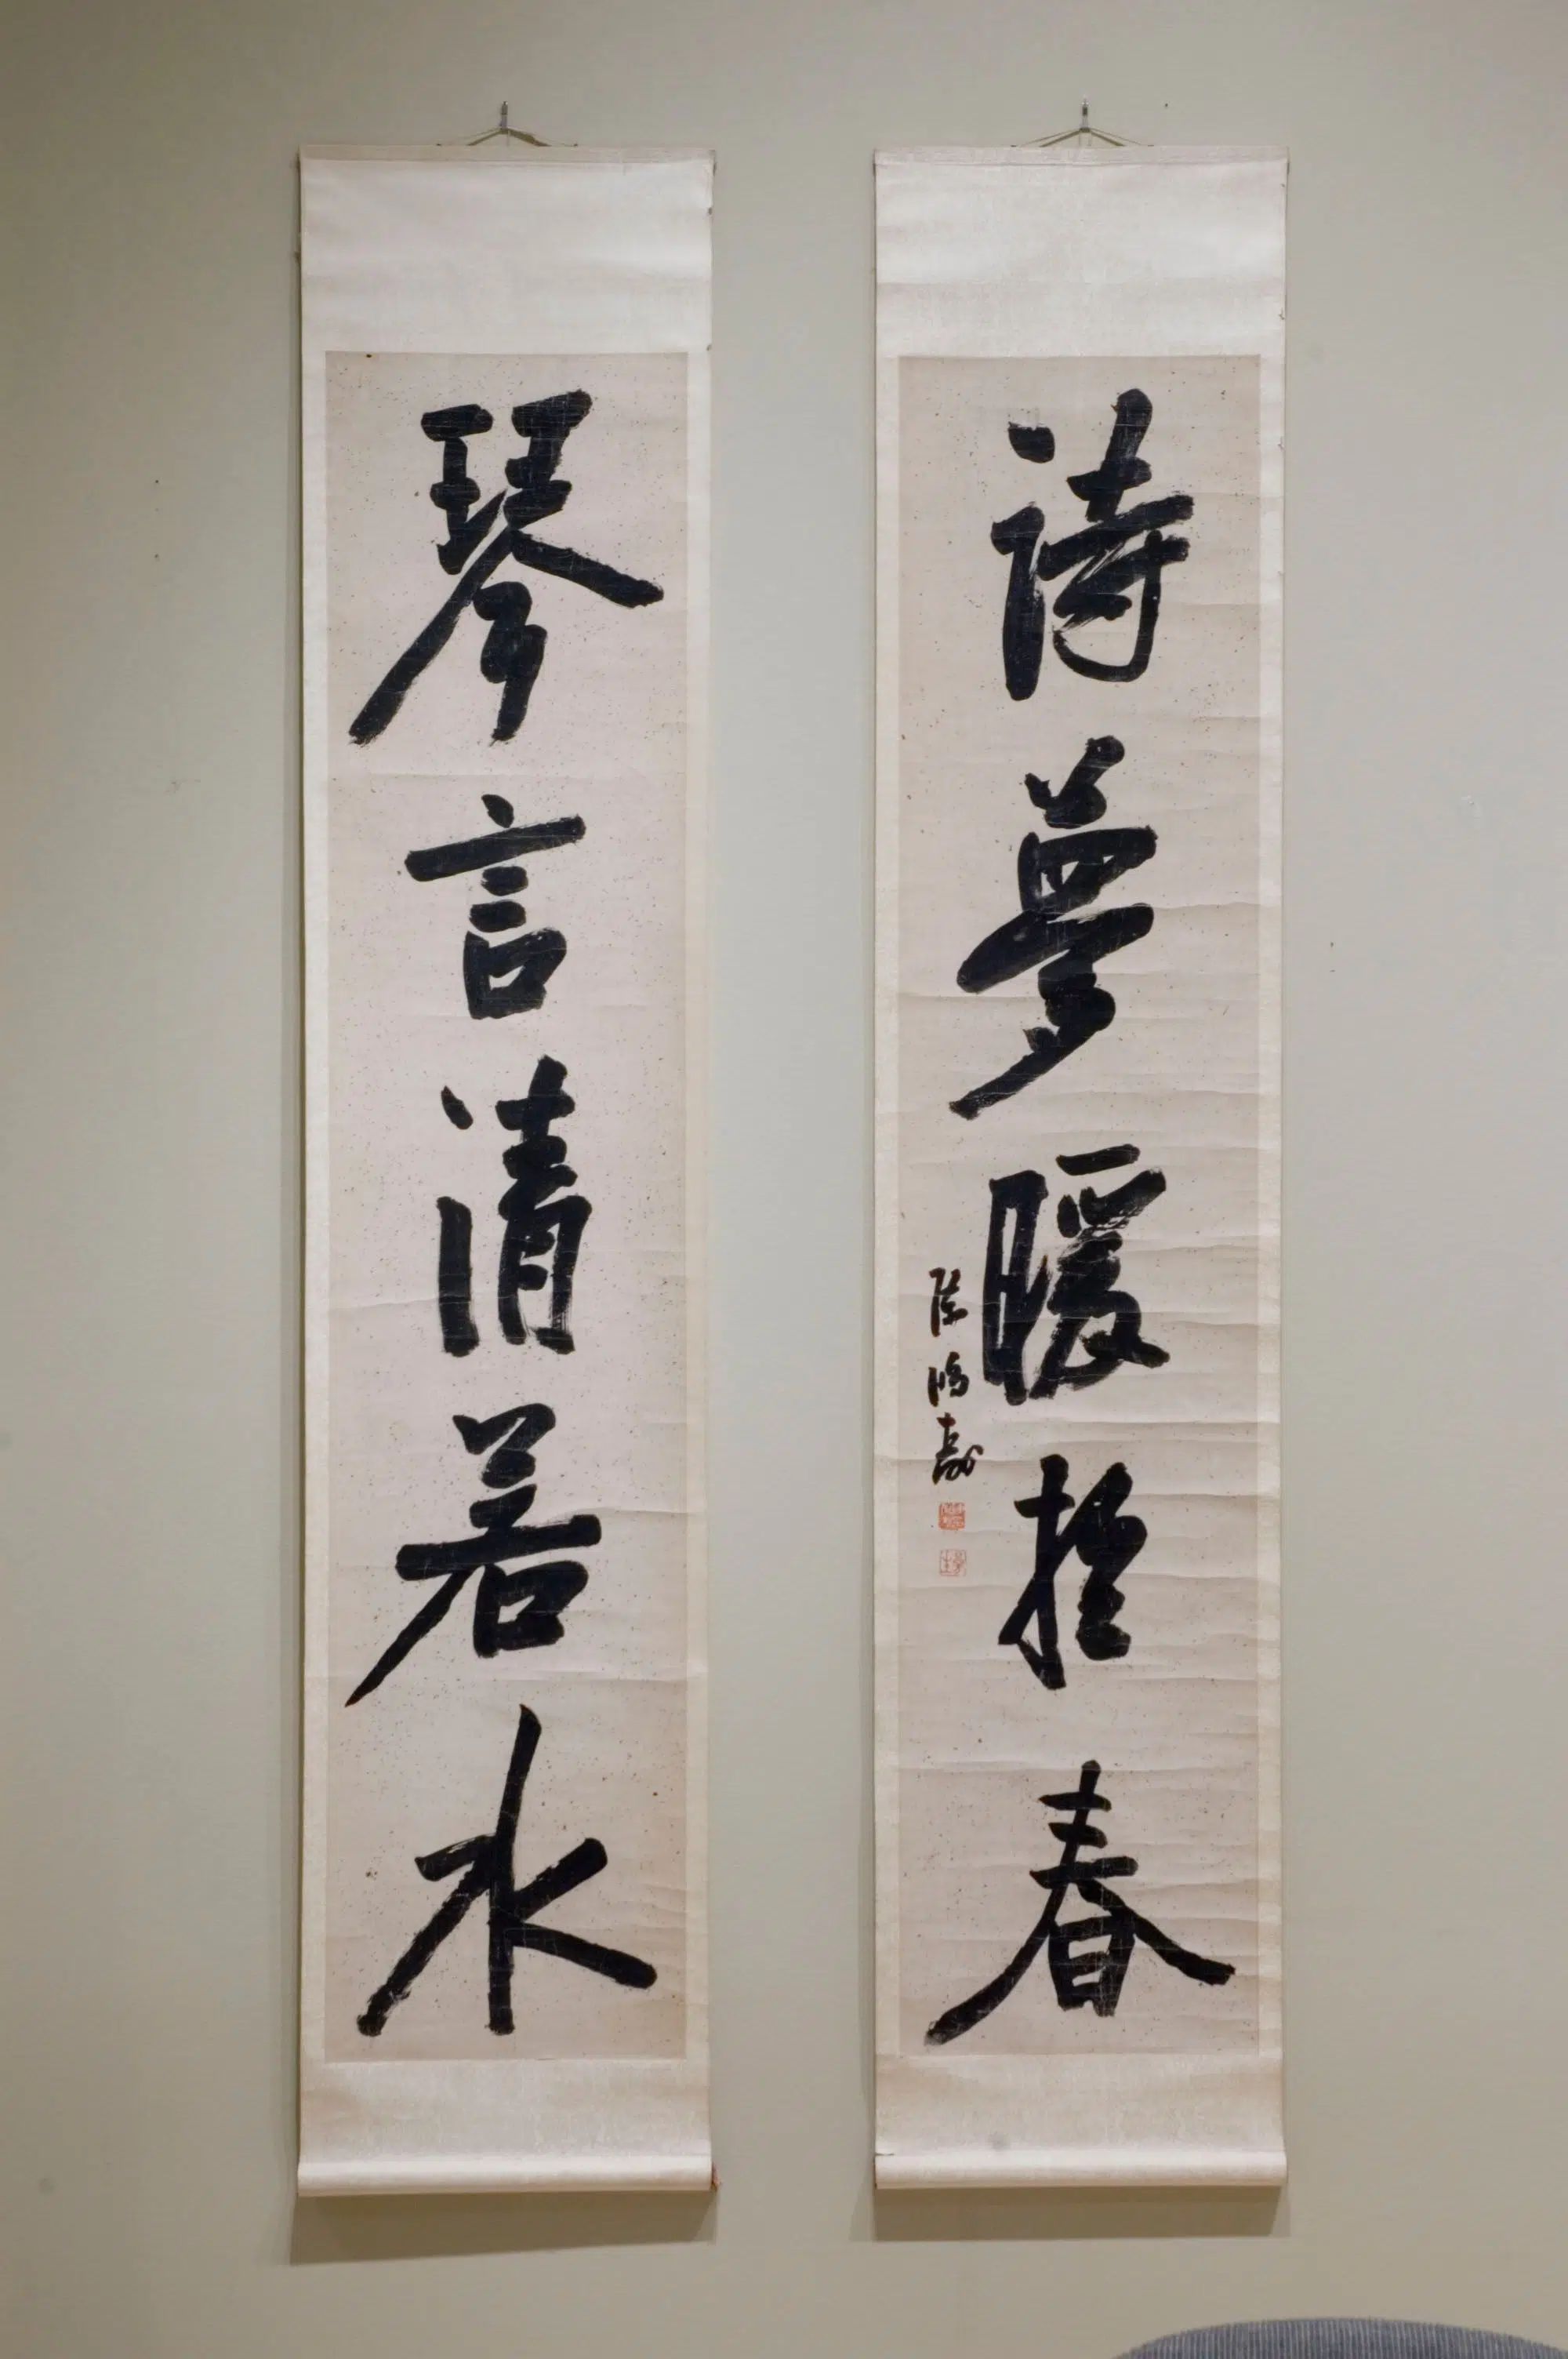 琴言清若水
詩夢暖於春
陳鴻壽